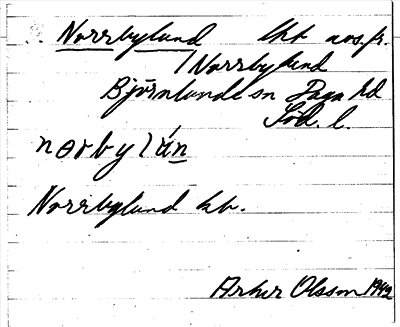 Norrbylund lht avs. fr.
/ Norrbylund
Björnlunda sn Daga hd
Söd. l.
norbylún
Norrbylund kb.
Arthur Olsson 1942